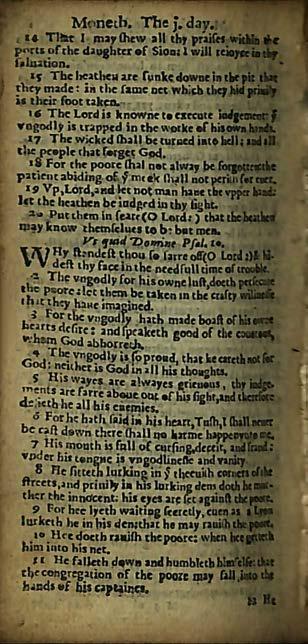 Moneth. The j. day.
14 That I may shew all thy praises within the
ports of the daughter of Sion: I will reioyce in thy
saluation.
15 The heathen are sunke downe in the pit that
they made: in the same net which they hid priuily
is their foot taken.
16 The Lord is knowne to execute iudgement: ẙ
vngodly is trapped in the worke of his own hands.
17 The wicked shall be turned into hell: and all
the people that forget God.
18 For the poore shall not alway be forgotten: the
patient abiding of ẙ meek shall not perish for euer.
19 Vp, Lord, and let not man haue the vpper hand:
let the heathen be iudged in thy sight.
20 Put them in feare (O Lord:) that the heathen
may know themselues to b: but men.
Vt quid Domine Psal. 10.
WHy standest thou so farre off (O Lord:) & hi-
dest thy face in the needfull time of trouble.
2 The vngodly for his owne lust, doeth persecute
the poore: let them be taken in the crafty wilinesse
that they haue imagined.
3 For the vngodly hath made boast of his owne
hearts desire: and speaketh good of the couetous,
whom God abhorreth.
4 The vngodly is so proud, that he careth not for
God: neither is God in all his thoughts.
5 His wayes are alwayes grieuous, thy iudge-
ments are farre aboue out of his sight, and therefore
defieth he all his enemies.
6 For he hath said in his heart, Tush, I shall neuer
be cast down there shall no harme happen vnto me.
7 His mouth is full of cursing, deceit, and fraud:
vnder his tongue is vngodlinesse and vanity.
8 He sitteth lurking in ẙ theeuish corners of the
streets, and priuily in his lurking dens doth he mur-
ther the innocent: his eyes are set against the poore.
9 For hee lyeth waiting secretly, euen as a Lyon
lurketh he in his den: that he may rauish the poore.
10 Hee doeth rauish the poore: when hee getteth
him into his net.
11 He falleth down and humbleth himselfe: that
the congregation of the pooze may fall into the
hands of his captaines.
He